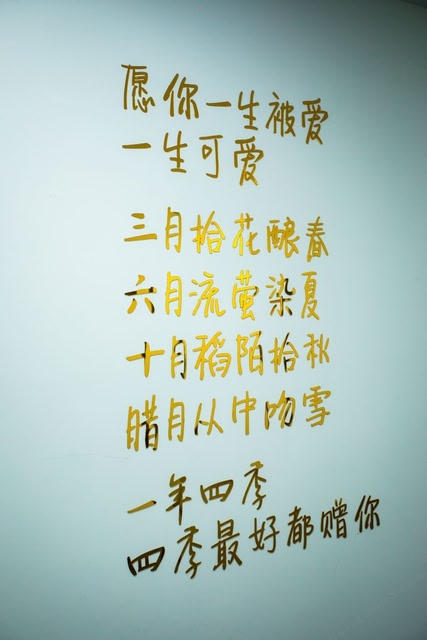 愿你一生被爱
一生可爱
三月拾花酿春
六月流萤染夏
十月稻陌拾秋
腊月从中吻雪
一年四季
四季最好都赠你